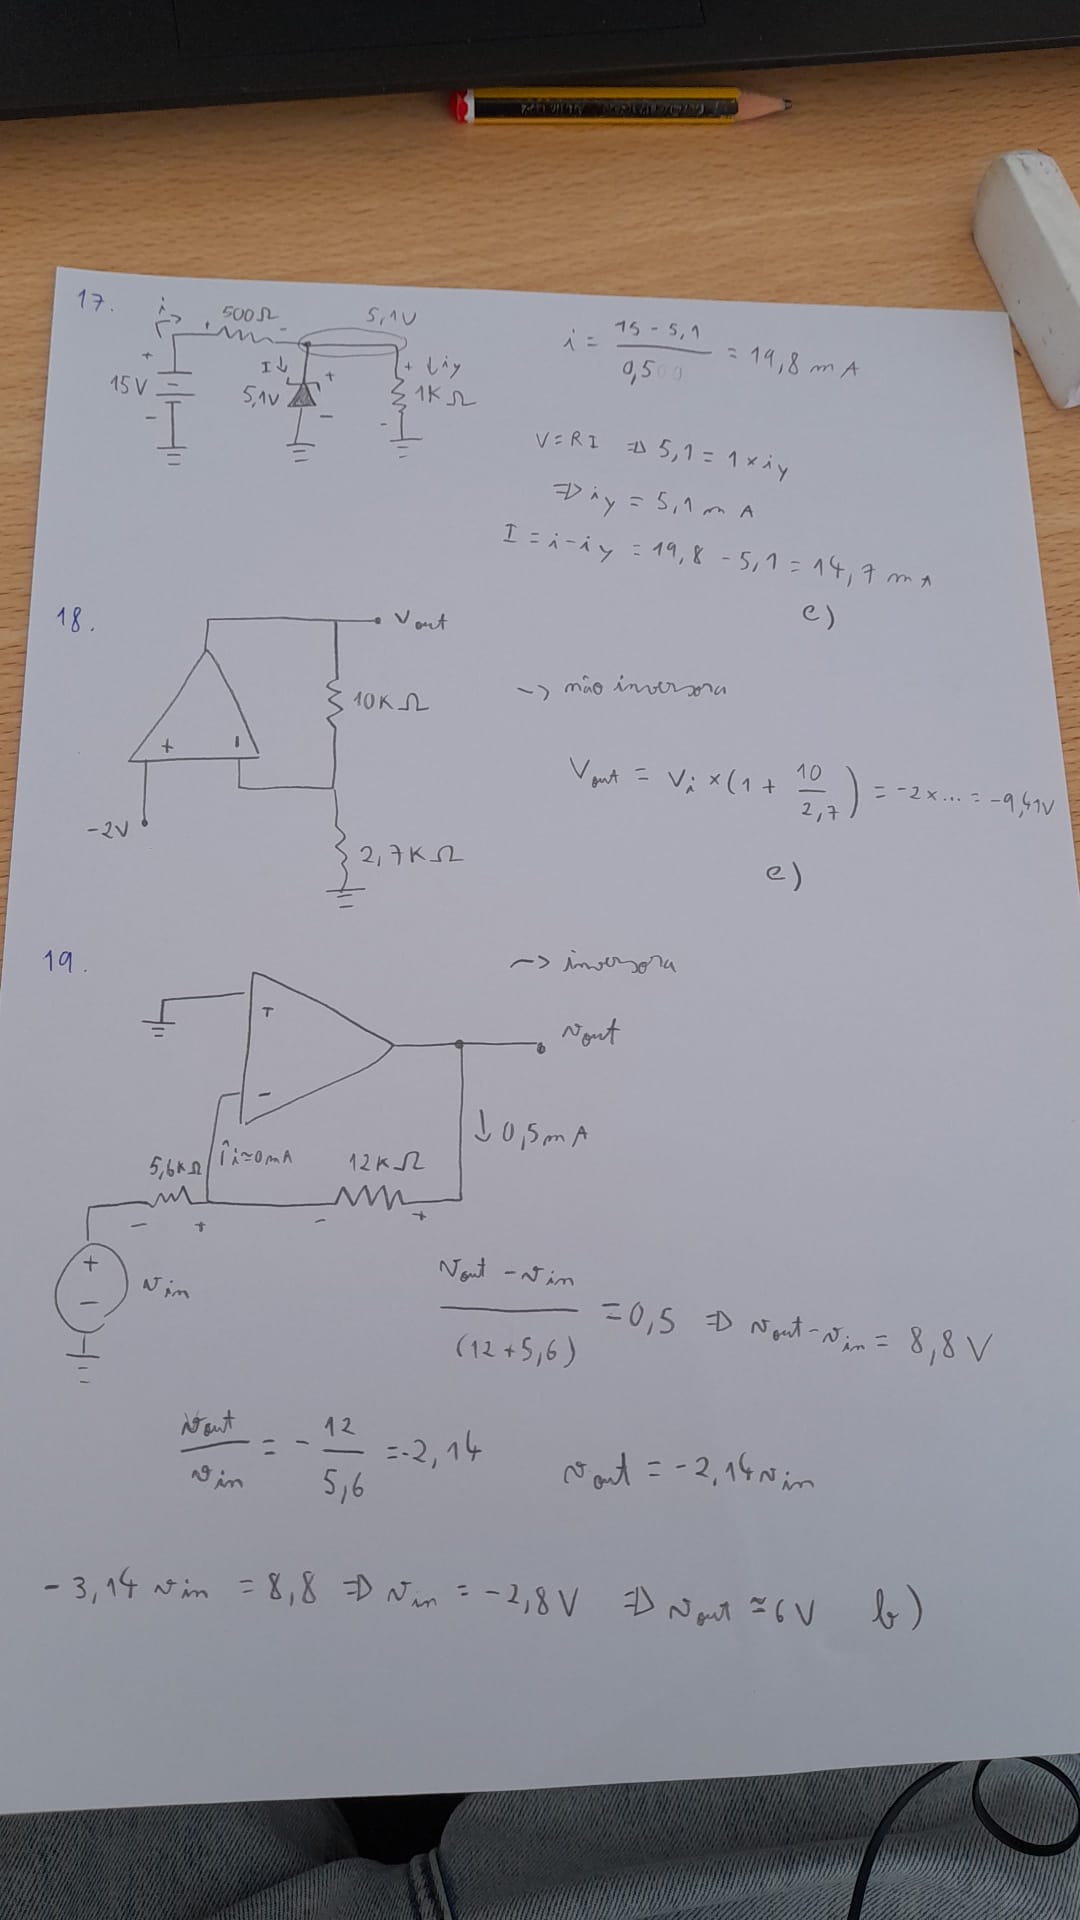 17.
i
500Ω
5,1V
+
-
15V
+
-
I↓
5,1V
+
-
+ ↓iy
1KΩ
-
i = (15 - 5,1)/0,5 = 19,8 mA
V=RI ⇒ 5,1 = 1×iy
⇒ iy = 5,1 mA
I = i-iy = 19,8 - 5,1 = 14,7 mA
e)
18.
Vout
10KΩ
+ -
-2V
2,7KΩ
-> não inversora
Vout = Vi × (1 + 10/2,7) = -2×... = -9,41V
e)
19.
-> inversora
+
-
vout
↓ 0,5mA
5,6KΩ
↑ i≃0mA
12KΩ
- + - +
+
-
vin
(vout - vin)/(12+5,6) = 0,5 ⇒ vout-vin = 8,8V
vout/vin = - 12/5,6 = -2,14 vout = -2,14vin
-3,14 vin = 8,8 ⇒ vin = -2,8V ⇒ vout ≃ 6V b)